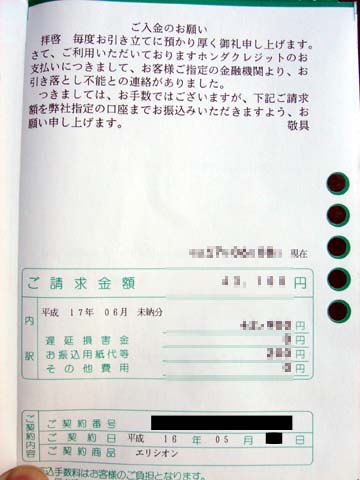 ご入金のお願い
拝啓 毎度お引き立てに預かり厚く御礼申し上げます。
さて、ご利用いただいておりますホンダクレジットのお
支払いにつきまして、お客様ご指定の金融機関より、お
引き落とし不能との連絡がありました。
つきましては、お手数ではございますが、下記ご請求
額を弊社指定の口座までお振込みいただきますよう、お
願い申し上げます。
敬具
現在
ご請求金額 円
内訳
平成 17年 06月 未納分
円
遅延損害金 円
お振込用紙代等 円
その他費用 円
ご契約内容
ご契約番号
ご契約日 平成 16 年 05 月 日
ご契約商品 エリシオン
込手数料はお客様のご負担となります。